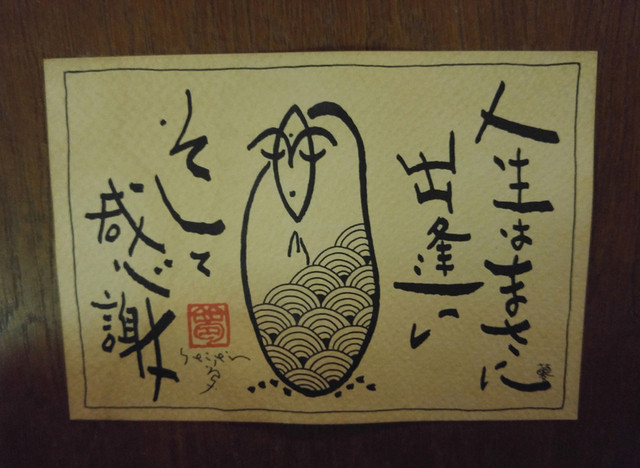 人生はまさに
出逢い
そして
感謝